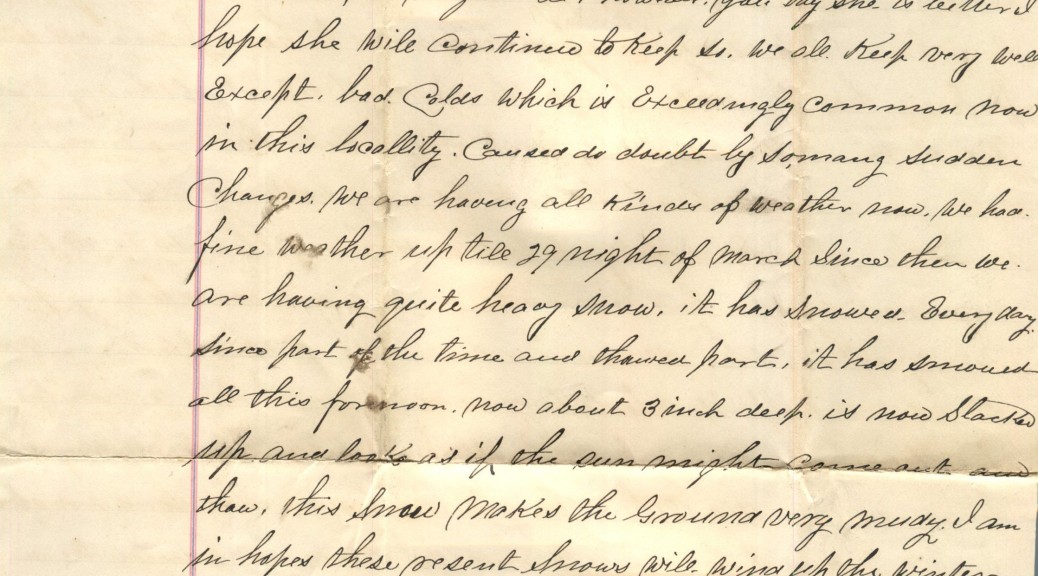 you say she is better I
hope she will continue to Keep so. we all. Keep very well
Except. bad. Colds which is Exceedingly common now
in this locallity. Caused do doubt by so many sudden
Changes. we are having all Kinds of weather now. we had.
fine weather up till 29 night of March Since then we.
are having quite heavy snow. it has snowed. Every day.
since part of the time and thawed part. it has snowed
all this forenoon. now about 3 inch deep. is now Slacked
up and looks as if the sun might come out and
thaw. this Snow Makes the Ground very mudy. I am
in hopes these resent Snows will wind up the winter